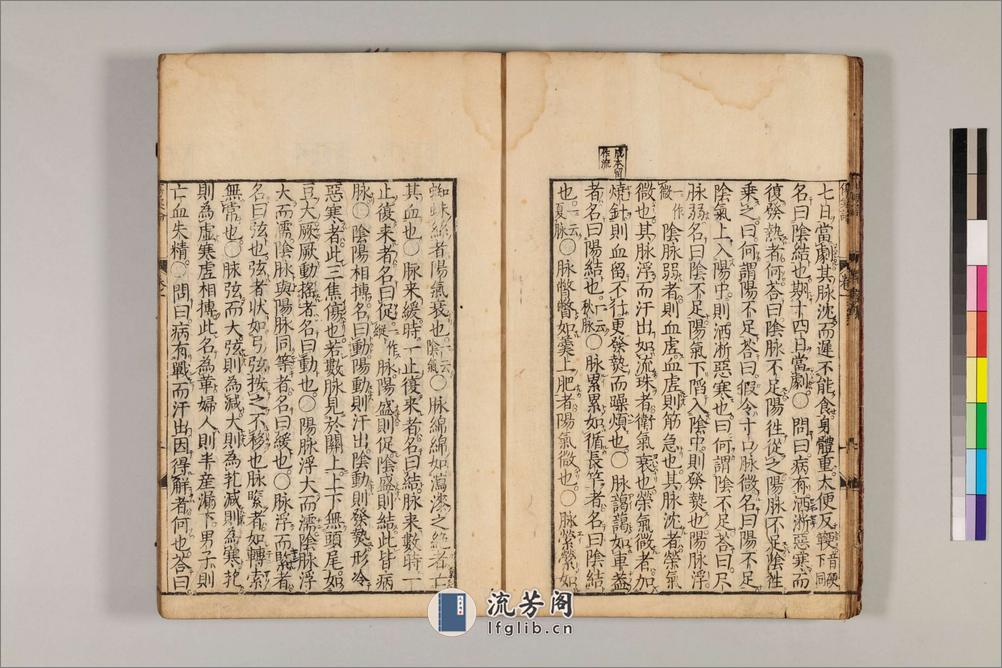 成本留
作流
七日當劇其脉沈而遲不能食身體重大便反鞕音硬下同
名曰陰結也期十四日當劇○問曰病有洒淅惡寒而
復發熱者何荅曰陰脉不足陽往從之陽脉不足陰往
乘之曰何謂陽不足荅曰假令寸口脉微名曰陽不足
陰氣上入陽中則洒淅惡寒也曰何謂陰不足荅曰尺
脉弱名曰陰不足陽氣下陷入陰中則發熱也陽脉浮
一作微陰脉弱者則血虛血虛則筋急也其脉沈者榮氣
微也其脉浮而汗出如流珠者衛氣衰也榮氣微者加
燒針則血留不行更發熱而躁煩也○脉藹藹如車蓋
者名曰陽結也一云秋脉○脉累累如循長竿者名曰陰結
也一云夏脉○脉瞥瞥如羹上肥者陽氣微也○脉縈縈如
蜘蛛絲者陽氣衰也一云陰氣○脉綿綿如瀉漆之絶者亡
其血也○脉來緩時一止復來者名曰結脉來數時一
止復來者名曰促一作縱脉陽盛則促陰盛則結此皆病
脉○陰陽相搏名曰動陽動則汗出陰動則發熱形冷
惡寒者此三焦傷也若數脉見於關上上下無頭尾如
豆大厥厥動搖者名曰動也○陽脉浮大而濡陰脉浮
大而濡陰脉與陽脉同等者名曰緩也○脉浮而緊者
名曰弦也弦者狀如弓弦按之不移也脉緊者如轉索
無常也○脉弦而大弦則為減大則為芤減則為寒芤
則為虛寒虛相搏此名為革婦人則半産漏下男子則
亡血失精○問曰病有戰而汗出因得解者何也荅曰
流芳阁
lfglib.cn